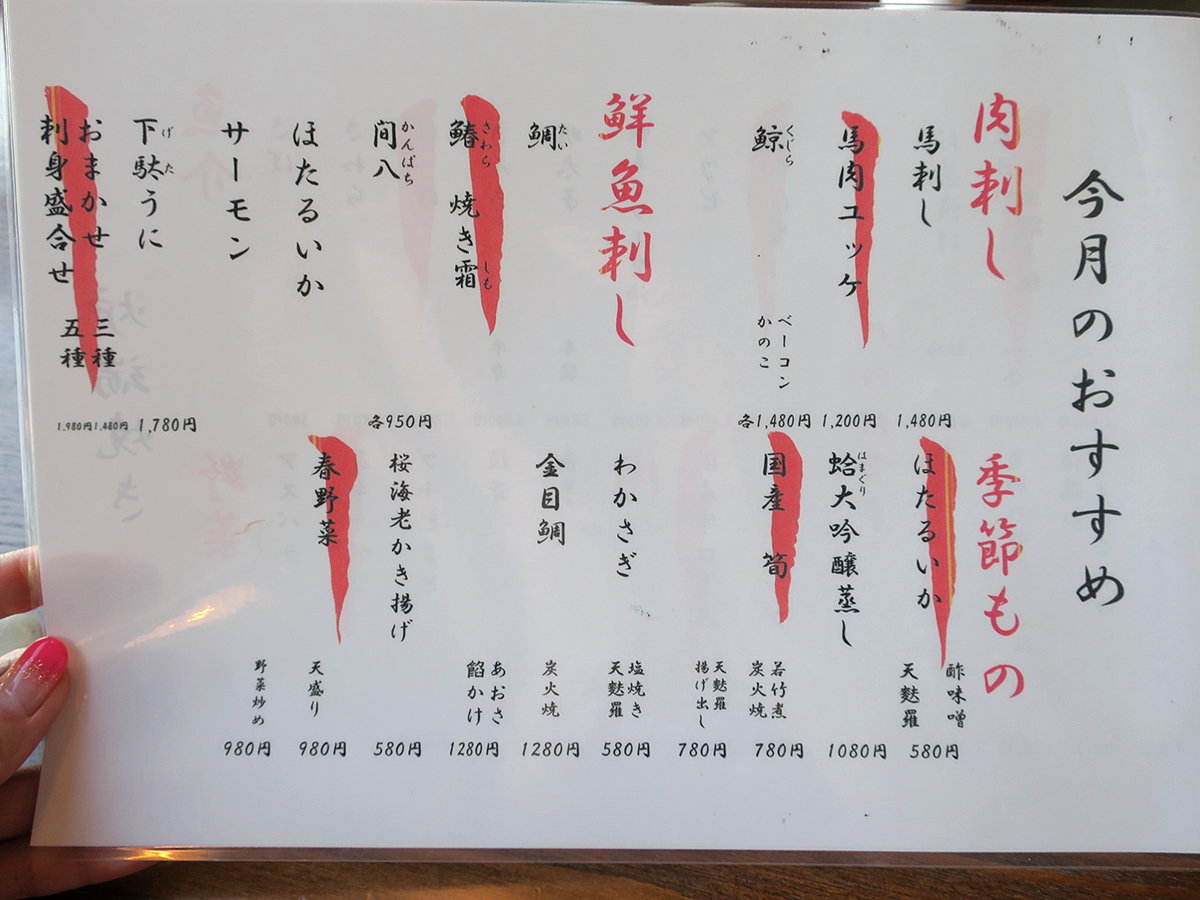 今月のおすすめ
肉刺し
馬刺し
1,480円
馬肉ユッケ
1,200円
鯨
くじら
ベーコン
かのこ
各1,480円
鮮魚刺し
鯛
たい
鰆 焼き霜
さわら しも
間八
かんぱち
各950円
ほたるいか
サーモン
下駄うに
げた
1,780円
おまかせ 三種
刺身盛合せ 五種
1,480円
1,980円
季節もの
ほたるいか
酢味噌
天麩羅
580円
蛤大吟醸蒸し
はまぐり
1080円
国産 筍
若竹煮
炭火焼
780円
天麩羅
揚げ出し
780円
わかさぎ
塩焼き
天麩羅
580円
金目鯛
炭火焼
1280円
あおさ
餡かけ
1280円
桜海老かき揚げ
580円
春野菜
天盛り
980円
野菜炒め
980円